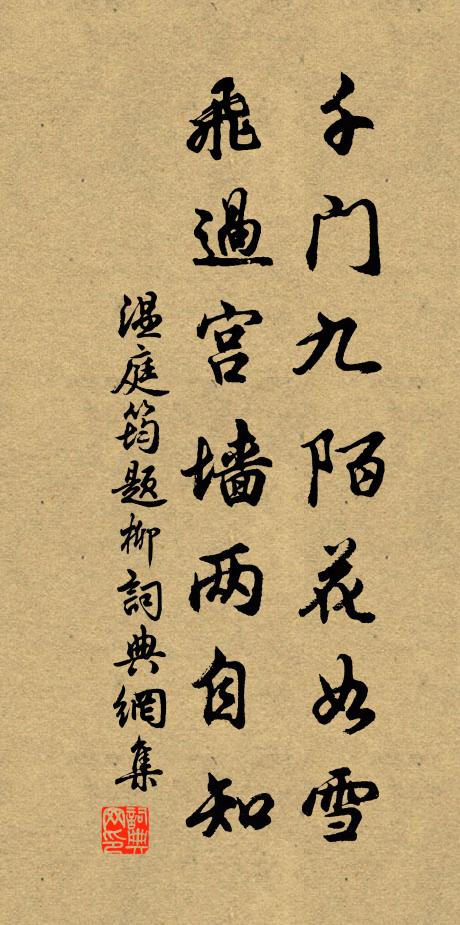 千门九陌花如雪
飛過宫墙两自知
温庭筠題柳詞典網集
詞典网印